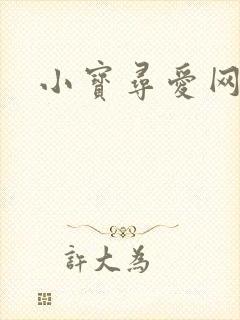 小寶尋愛网
許大為